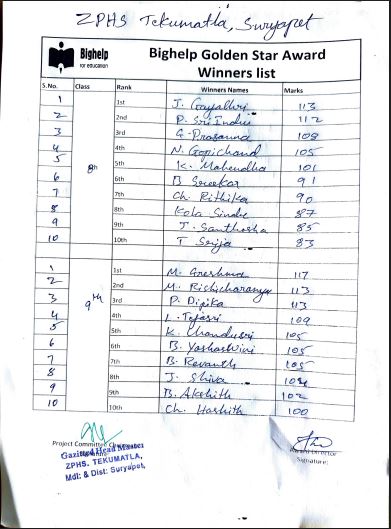 ZPHS Tekumatla, Suryapet
Bighelp
for education
Bighelp Golden Star Award
Winners list
S.No. Class Rank Winners Names Marks
1 1st J. Gayathri 113
2 2nd P. Sri Indu 112
3 3rd G. Prasanna 109
4 4th N. Gopichand 105
5 8th 5th K. Mahendha 101
6 6th B. Sreekar 91
7 7th Ch. Rithika 90
8 8th Kola Sindhu 87
9 9th J. Santhosha 85
10 10th T Srija 83
1 1st M. Greshma 117
2 2nd M. Rishicharanya 113
3 9th 3rd P. Dipika 113
4 4th L. Tejasri 109
5 5th K. Chandusri 105
6 6th B. Yashaswini 105
7 7th B. Revanth 105
8 8th J. Shiva 104
9 9th B. Akshith 102
10 10th Ch. Harshith 100
Project Committee
Gazitted Head Master
ZPHS. TEKUMATLA,
Mdl: & Dist: Suryapet,
Director
Signature: